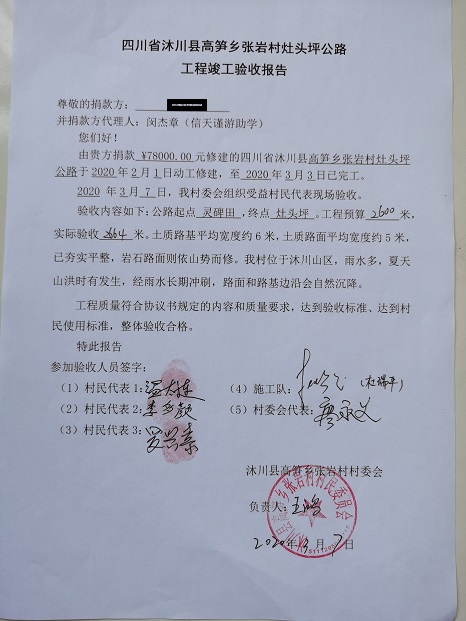 四川省沐川县高笋乡张岩村灶头坪公路
工程竣工验收报告
尊敬的捐款方：
并捐款方代理人：闵杰章（信天谨游助学）
您们好！
由贵方捐款 ¥78000.00 元修建的四川省沐川县高笋乡张岩村灶头坪
公路于 2020 年 2 月 1 日动工修建，至 2020 年 3 月 3 日已完工。
2020 年 3 月 7 日，我村委会组织受益村民代表现场验收。
验收内容如下：公路起点 灵碑田，终点 灶头坪。工程预算 2600 米，
实际验收 2664 米。土质路基平均宽度约 6 米，土质路面平均宽度约 5 米，
已夯实平整，岩石路面则依山势而修。我村位于沐川山区，雨水多，夏天
山洪时有发生，经雨水长期冲刷，路面和路基边沿会自然沉降。
工程质量符合协议书规定的内容和质量要求，达到验收标准、达到村
民使用标准，整体验收合格。
特此报告
参加验收人员签字：
（1）村民代表 1：
（2）村民代表 2：
（3）村民代表 3：
（4）施工队：
（5）村委会代表：廖永义
沐川县高笋乡张岩村村委会
负责人：
2020 年 3 月 7 日